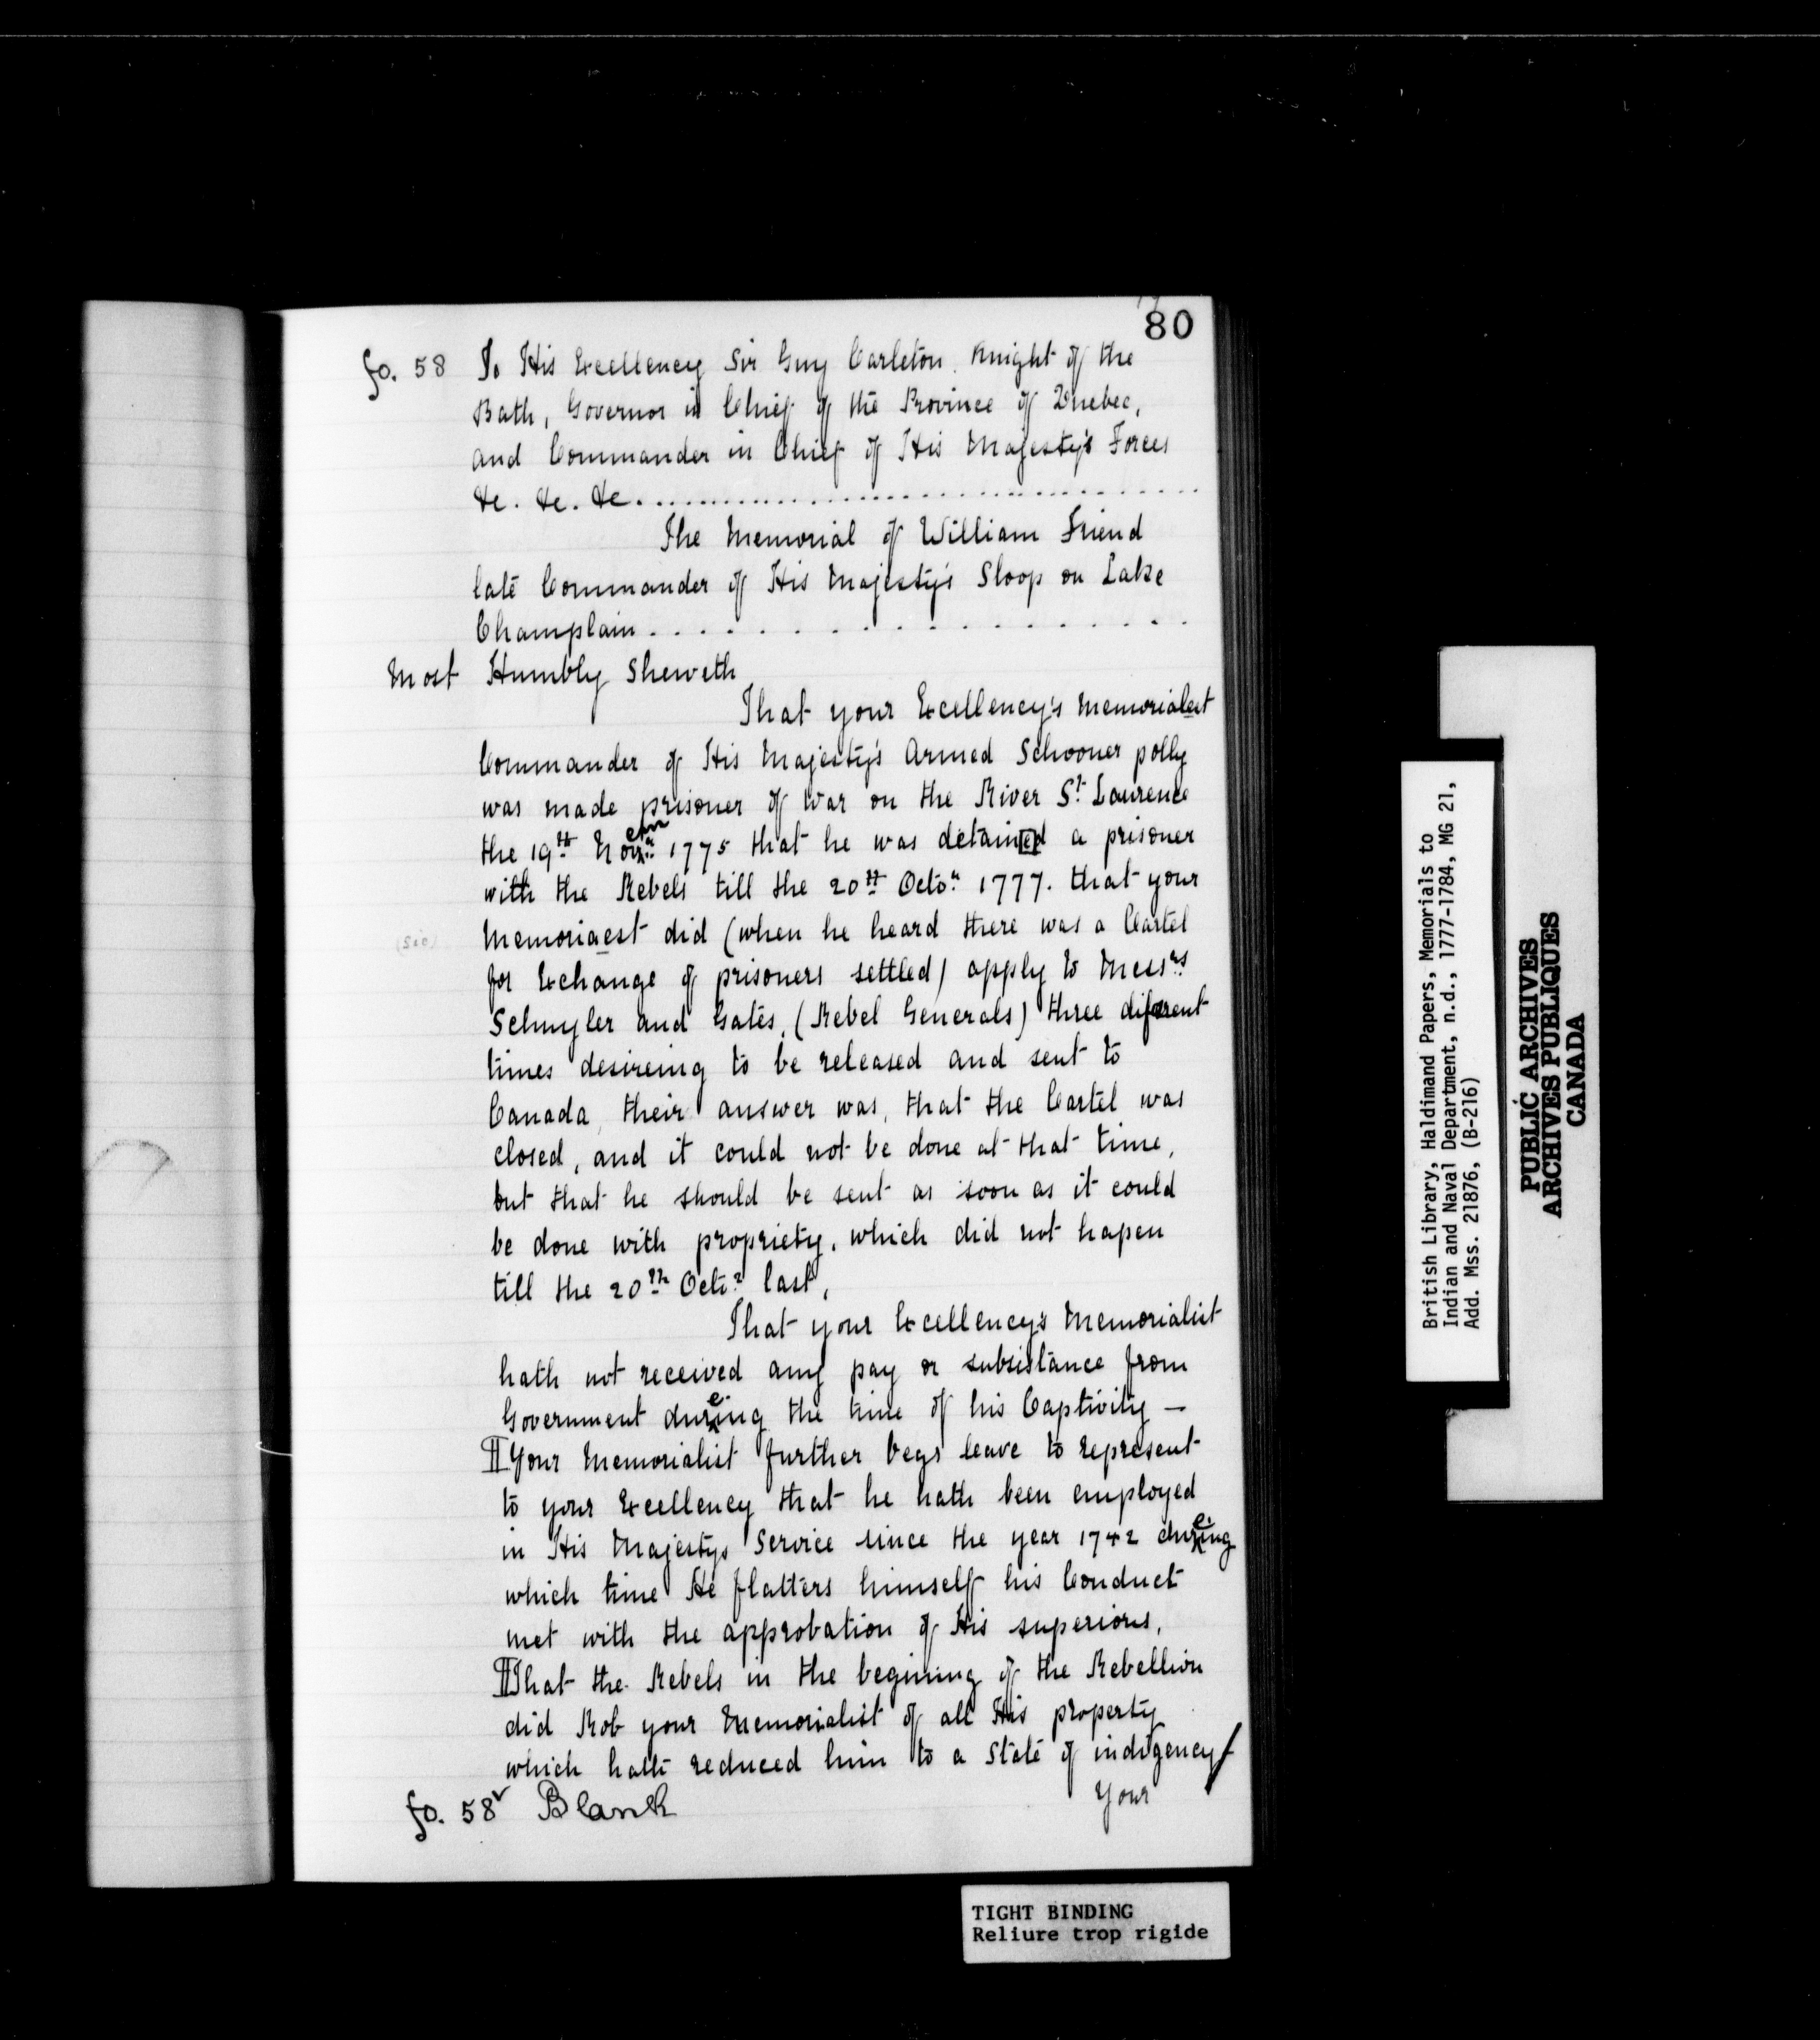 80
fo. 58 To His Excellency Sir Guy Carleton Knight of the
Bath, Governor in Chief of the Province of Quebec,
and Commander in Chief of His Majesty's Forces
&c. &c. &c. ........................................
The Memorial of William Friend
late Commander of His Majesty's Sloop on Lake
Champlain. . . . . . . . . . . . . . . . .
Most Humbly Sheweth
That your Excellency's Memorialest
Commander of His Majesty's Armed Schooner polly
was made prisoner of War on the River St. Laurence
the 19th Novemr. 1775 that he was detain[e]d a prisoner
with the Rebels till the 20th Octor. 1777. that your
(sic) Memoriaest did (when he heard there was a Cartel
for Exchange of prisoners settled) apply to Messrs
Schuyler and Gates, (Rebel Generals) three diferent
times desireing to be released and sent to
Canada, their answer was, that the Cartel was
closed, and it could not be done at that time,
but that he should be sent as soon as it could
be done with propriety, which did not hapen
till the 20th Octr. last,
That your Excellency's Memorialist
hath not received any pay or subsistance from
Government dureing the time of his Captivity —
Your Memorialist further begs leave to represent
to your Excellency that he hath been employed
in His Majestys Service since the year 1742 dureing
which time He flatters himself his Conduct
met with the approbation of His superiors,
That the Rebels in the begining of the Rebellion
did Rob your Memorialist of all His property
which hath reduced him to a State of indigency
Your
fo. 58v Blank
British Library, Haldimand Papers, Memorials to
Indian and Naval Department, n.d., 1777-1784, MG 21,
Add. Mss. 21876, (B-216)
PUBLIC ARCHIVES
ARCHIVES PUBLIQUES
CANADA
TIGHT BINDING
Reliure trop rigide